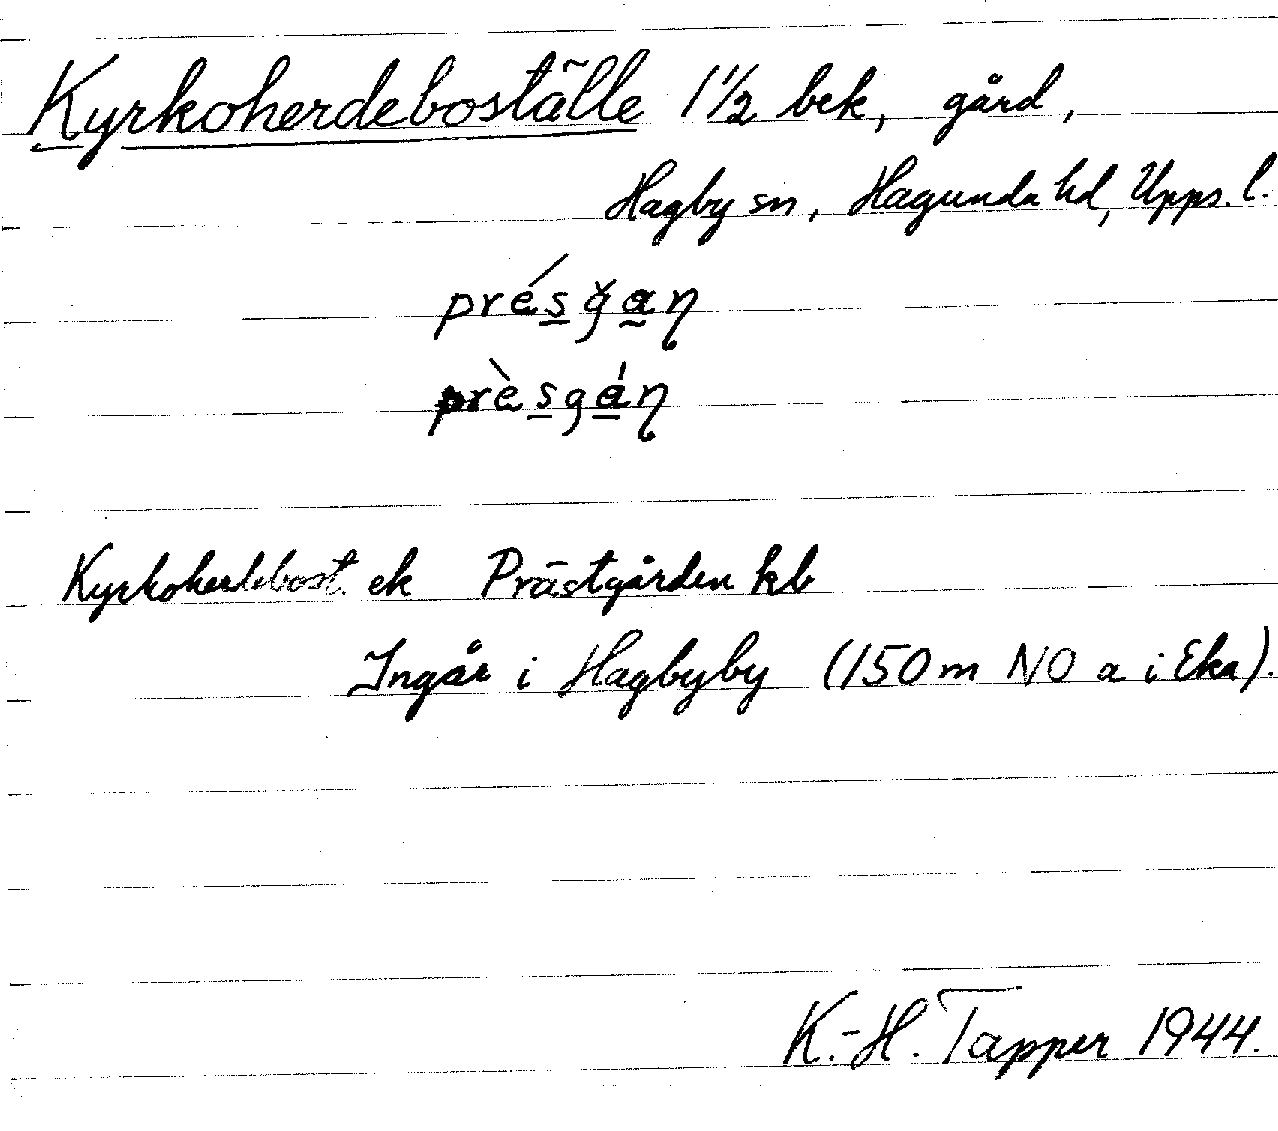 Kyrkoherdeboställe 1 1/2 bek, gård,
Hagby sn, Hagunda hd, Upps. l.
présgan
prèsgán
Kyrkoherdebost. ek Prästgården kb
Ingår i Hagbyby (150 m NO a i Eka).
K.-H. Tapper 1944.